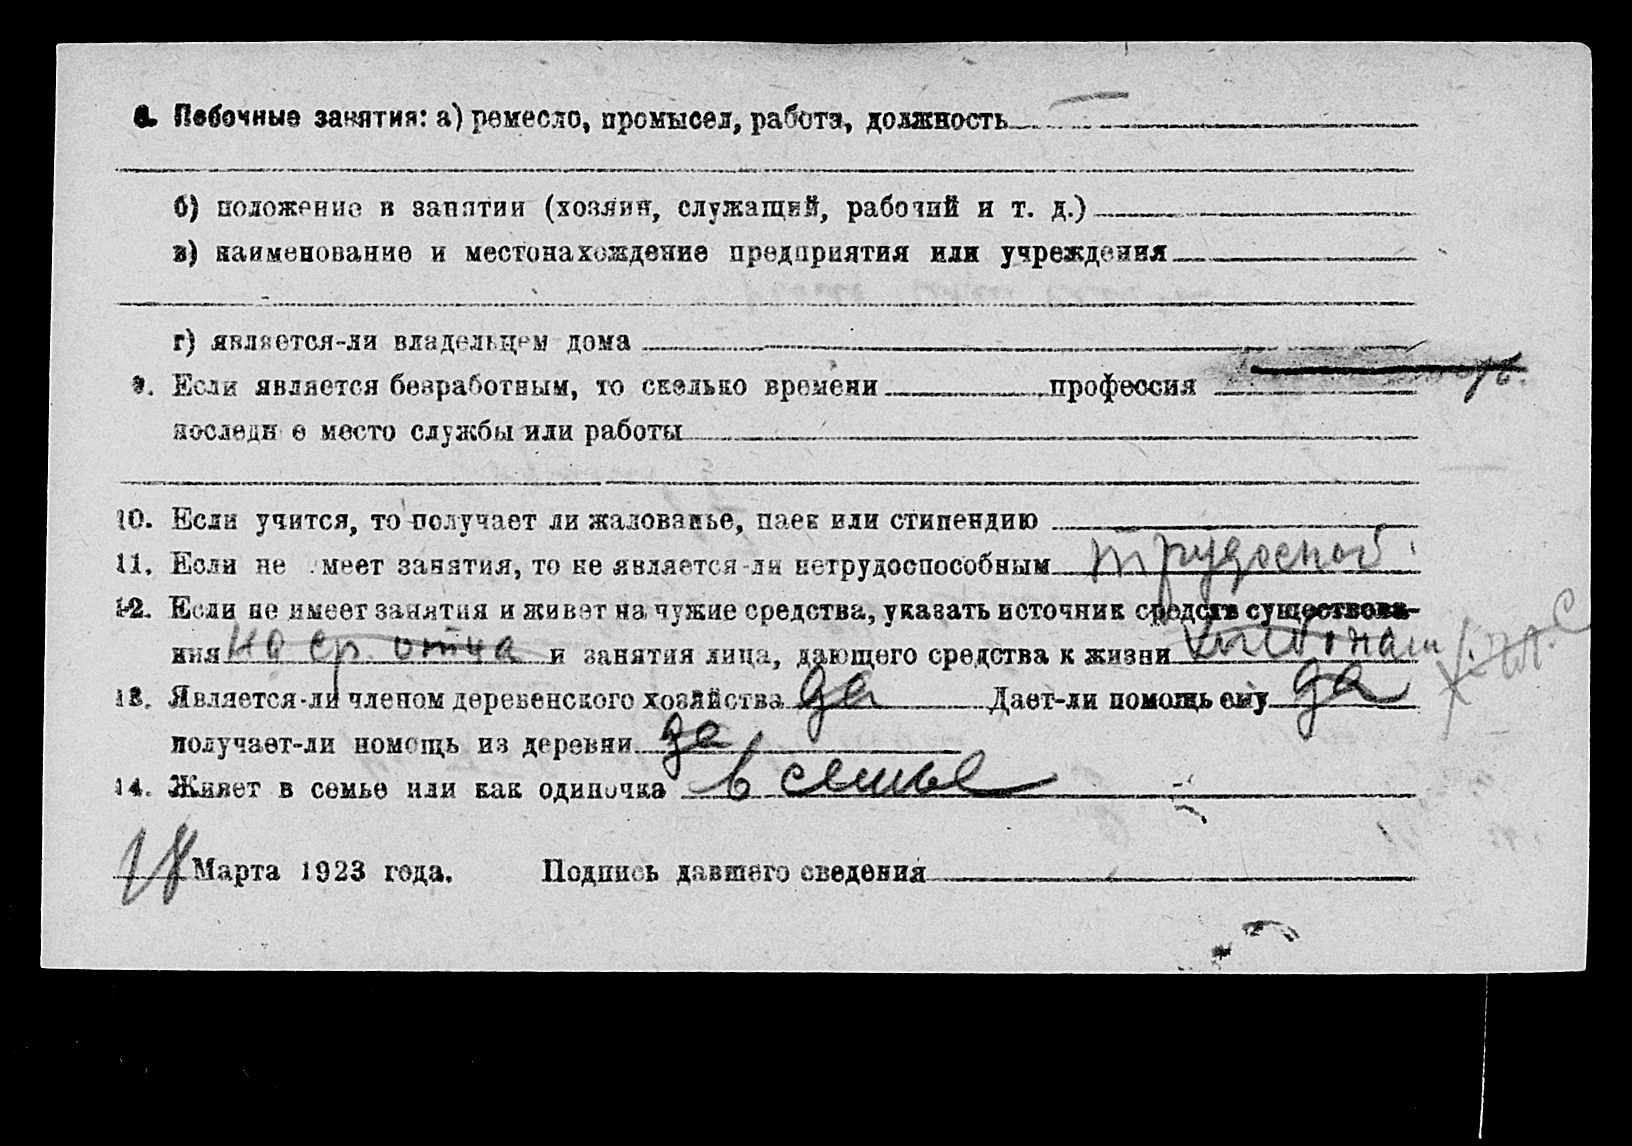 8. Побочные занятия: а) ремесло, промысел, работа, должность —
б) положение в занятии (хозяин, служащий, рабочий и т. д.)
в) наименование и местонахождение предприятия или учреждения
г) является-ли владельцем дома
9. Если является безработным, то сколько времени профессия
последн е место службы или работы
10. Если учится, то получает ли жалованье, паек или стипендию
11. Если не меет занятия, то не является-ли нетрудоспособным трудоспос
12. Если не имеет занятия и живет на чужие средства, указать источник средств существова-
ния на ср. отца и занятия лица, дающего средства к жизни
13. Является-ли членом деревенского хозяйства да Дает-ли помощь ему да
получает-ли помощь из деревни да
14. Живет в семье или как одиночка в семье
18 Марта 1923 года. Подпись давшего сведения